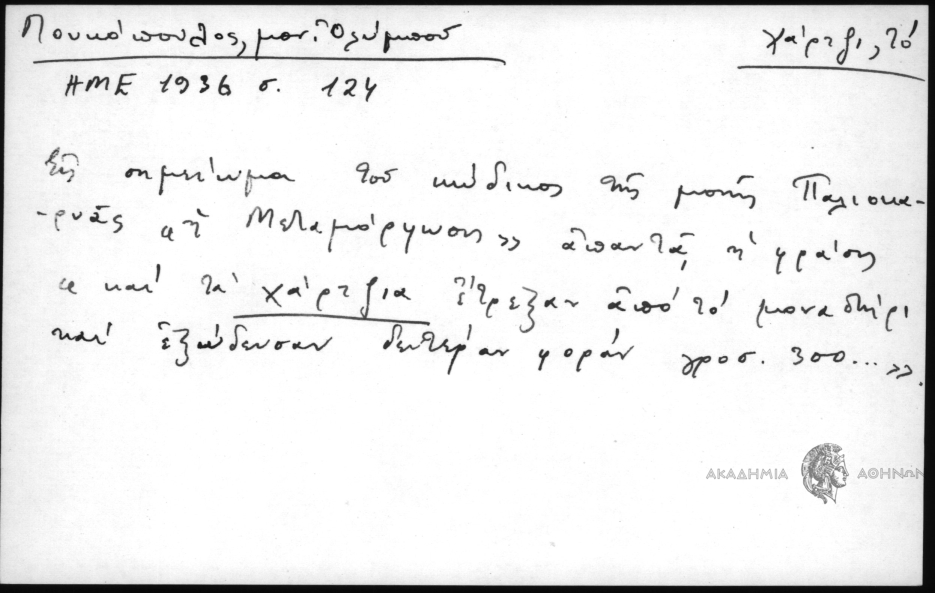 Λουκόπουλος, μον. Ὀλύμπου
χάρτζι, τό
ΗΜΕ 1936 σ. 124
Εἰς σημείωμα τοῦ κώδικος τῆς μονῆς Παλιοκα-
-ρυᾶς «ἡ Μεταμόρφωσης» ἀπαντᾶ ἡ φράσης
«καί τά χάρτζια ἔτρεξαν ἀπό τό μοναστήρι
καί ἐξώδευσαν δευτέραν φοράν γροσ. 300...».
ΑΚΑΔΗΜΙΑ ΑΘΗΝΩΝ